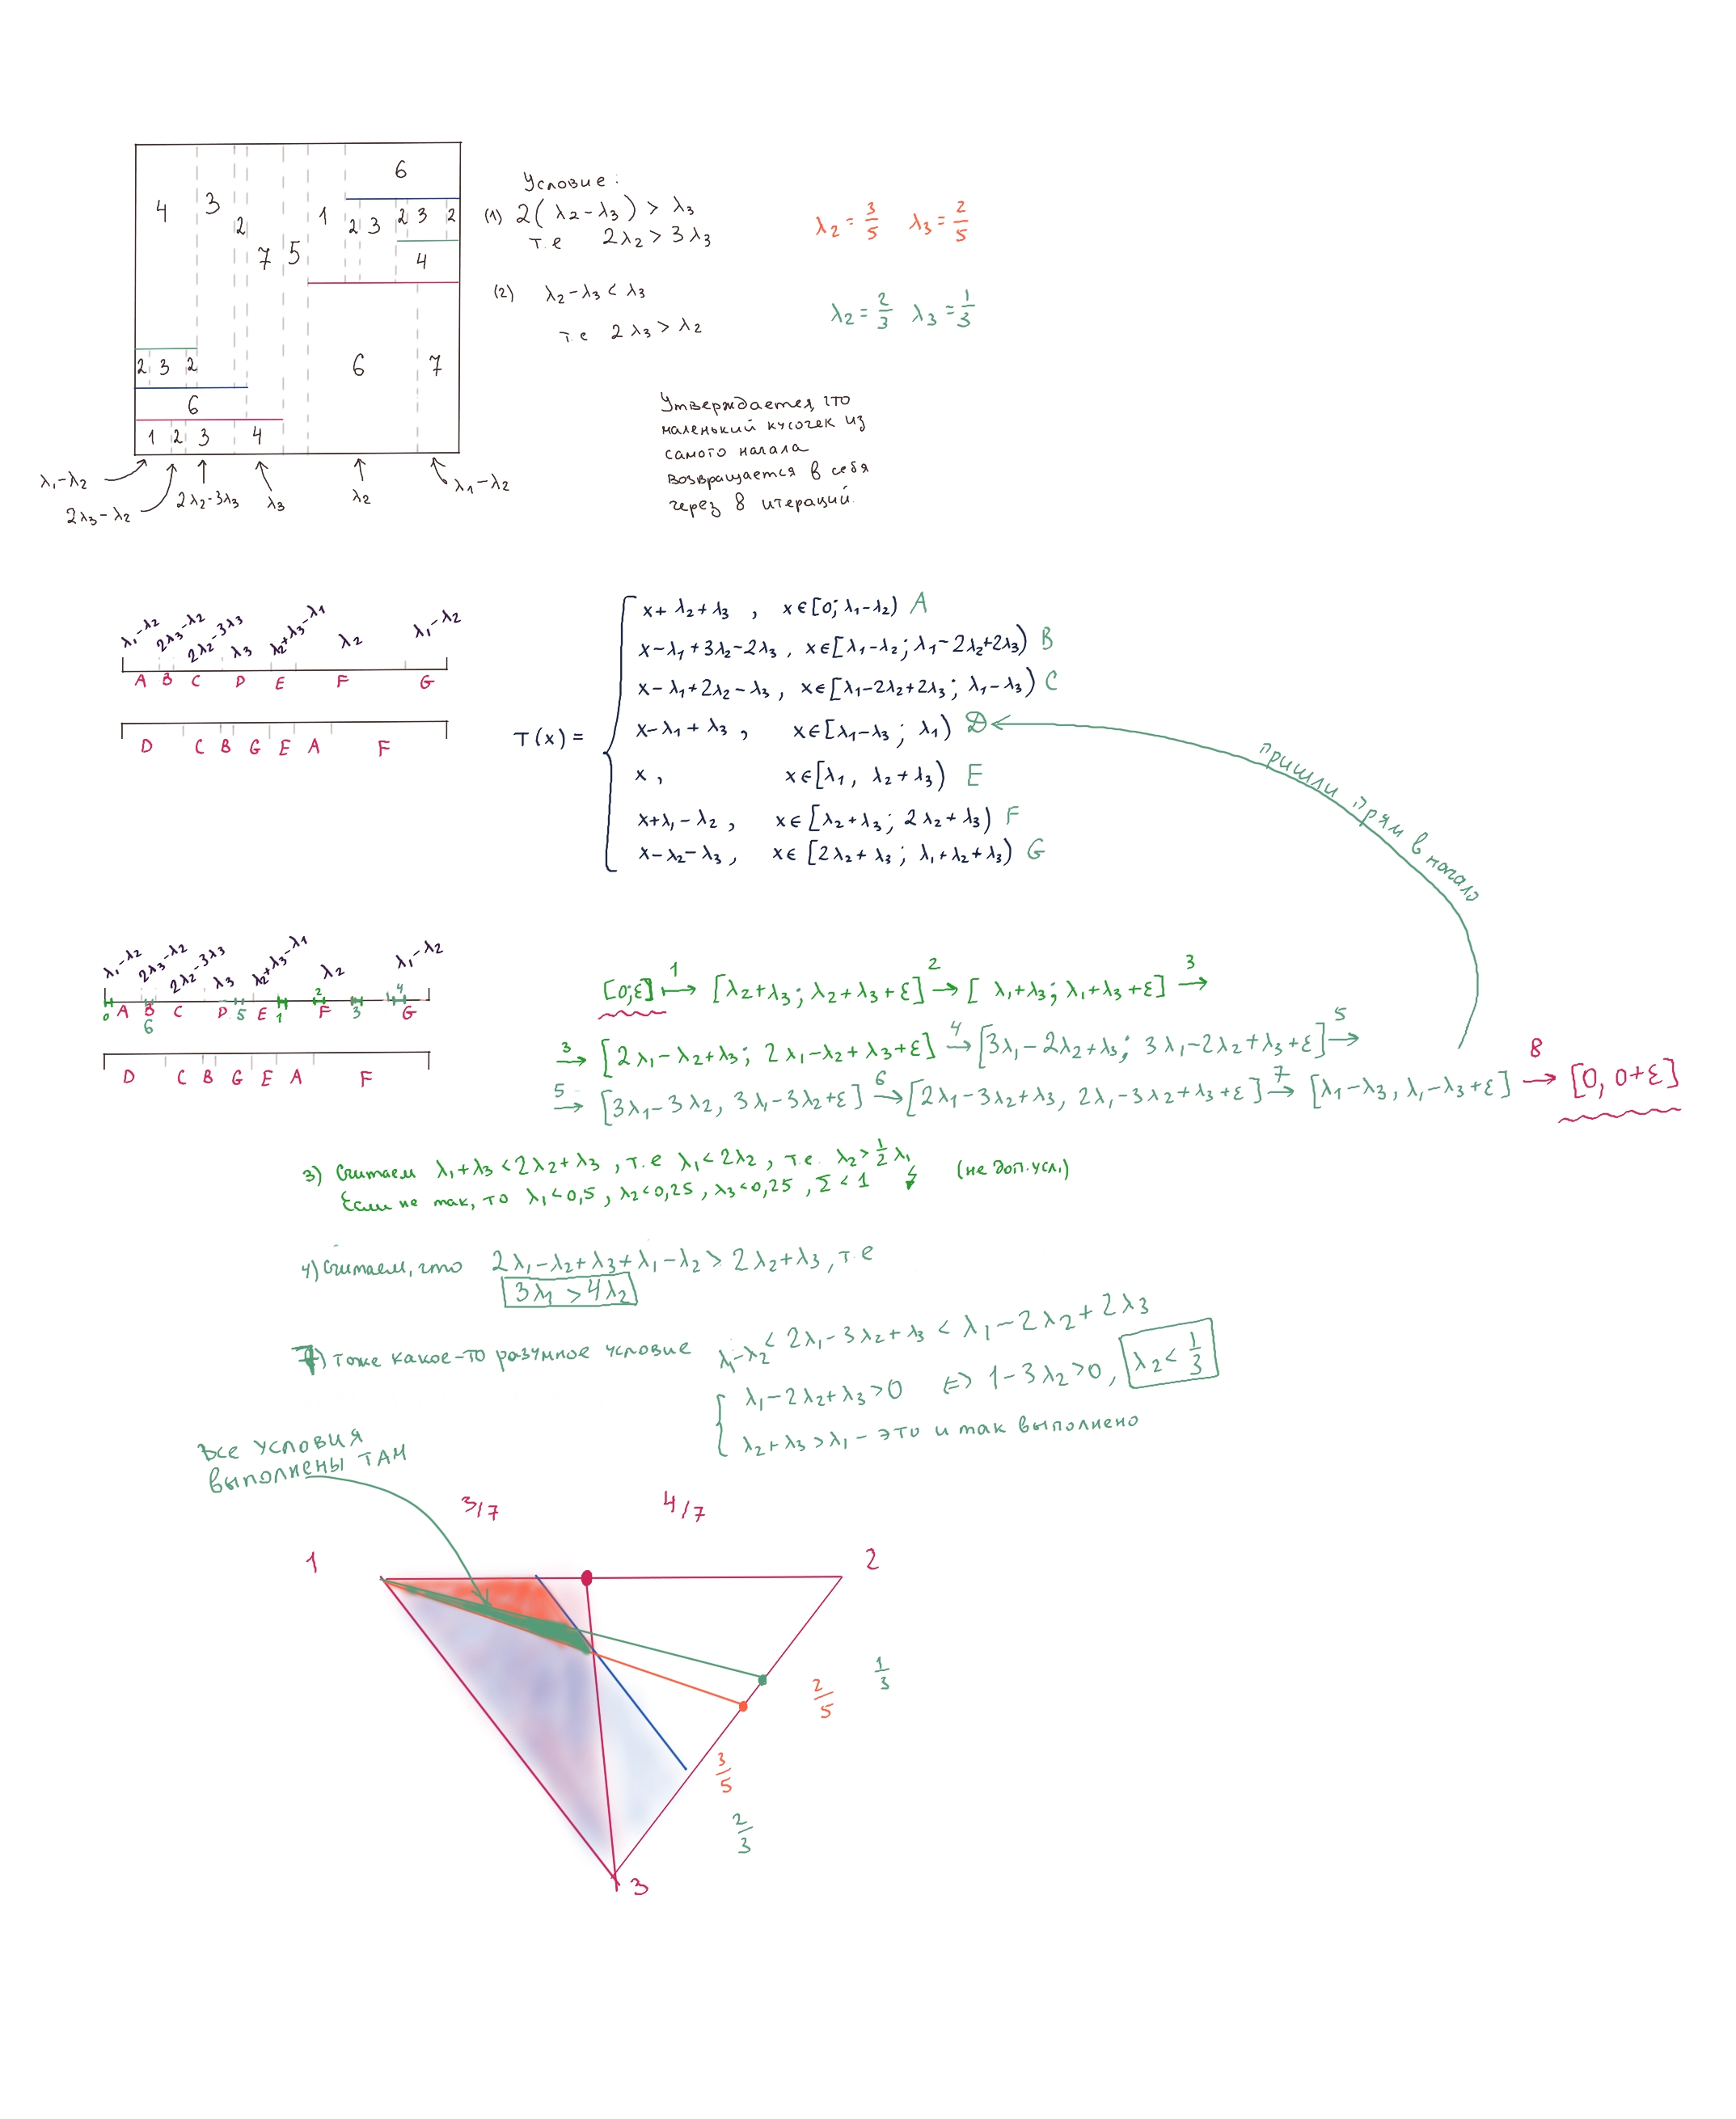 6
4 3 2 7 5 1 2 3 2 3 2
4
2 3 2
6
6 7
1 2 3 4
λ₁-λ₂
2λ₃-λ₂
2λ₂-3λ₃
λ₃
λ₂
λ₁-λ₂
Условие:
(1) 2(λ₂-λ₃) > λ₃
т.е 2λ₂ > 3λ₃
(2) λ₂-λ₃ < λ₃
т.е 2λ₃ > λ₂
λ₂ = 3/5 λ₃ = 2/5
λ₂ = 2/3 λ₃ = 1/3
Утверждается, что
маленький кусочек из
самого начала
возвращается в себя
через 8 итераций.
λ₁-λ₂ 2λ₃-λ₂ 2λ₂-3λ₃ λ₃ λ₂+λ₃-λ₁ λ₂ λ₁-λ₂
A B C D E F G
D C B G E A F
T(x) =
x+λ₂+λ₃ , x∈[0; λ₁-λ₂) A
x-λ₁+3λ₂-2λ₃ , x∈[λ₁-λ₂; λ₁-2λ₂+2λ₃) B
x-λ₁+2λ₂-λ₃ , x∈[λ₁-2λ₂+2λ₃; λ₁-λ₃) C
x-λ₁+λ₃ , x∈[λ₁-λ₃; λ₁) D
x , x∈[λ₁, λ₂+λ₃) E
x+λ₁-λ₂ , x∈[λ₂+λ₃; 2λ₂+λ₃) F
x-λ₂-λ₃ , x∈[2λ₂+λ₃; λ₁+λ₂+λ₃) G
пришли прям в начало
λ₁-λ₂ 2λ₃-λ₂ 2λ₂-3λ₃ λ₃ λ₂+λ₃-λ₁ λ₂ λ₁-λ₂
0 A B 6 C D 5 E 1 2 F 3 4 G
D C B G E A F
[0;ε] 1→ [λ₂+λ₃; λ₂+λ₃+ε] 2→ [λ₁+λ₃; λ₁+λ₃+ε] 3→
3→ [2λ₁-λ₂+λ₃; 2λ₁-λ₂+λ₃+ε] 4→ [3λ₁-2λ₂+λ₃; 3λ₁-2λ₂+λ₃+ε] 5→
5→ [3λ₁-3λ₂, 3λ₁-3λ₂+ε] 6→ [2λ₁-3λ₂+λ₃, 2λ₁-3λ₂+λ₃+ε] 7→ [λ₁-λ₃, λ₁-λ₃+ε] 8→ [0, 0+ε]
3) Считаем λ₁+λ₃<2λ₂+λ₃, т.е λ₁<2λ₂, т.е. λ₂>1/2 λ₁ (не доп.усл.)
Если не так, то λ₁<0,5, λ₂<0,25, λ₃<0,25, Σ<1
4) Считаем, что 2λ₁-λ₂+λ₃+λ₁-λ₂ > 2λ₂+λ₃, т.е
3λ₁ > 4λ₂
7) Тоже какое-то разумное условие λ₁-λ₂ < 2λ₁-3λ₂+λ₃ < λ₁-2λ₂+2λ₃
λ₁-2λ₂+λ₃>0 ⇔ 1-3λ₂>0, λ₂ < 1/3
λ₂+λ₃>λ₁ - это и так выполнено
Все условия
выполнены ТАМ
3/7 4/7
1 2
1/3
2/5
3/5
2/3
3